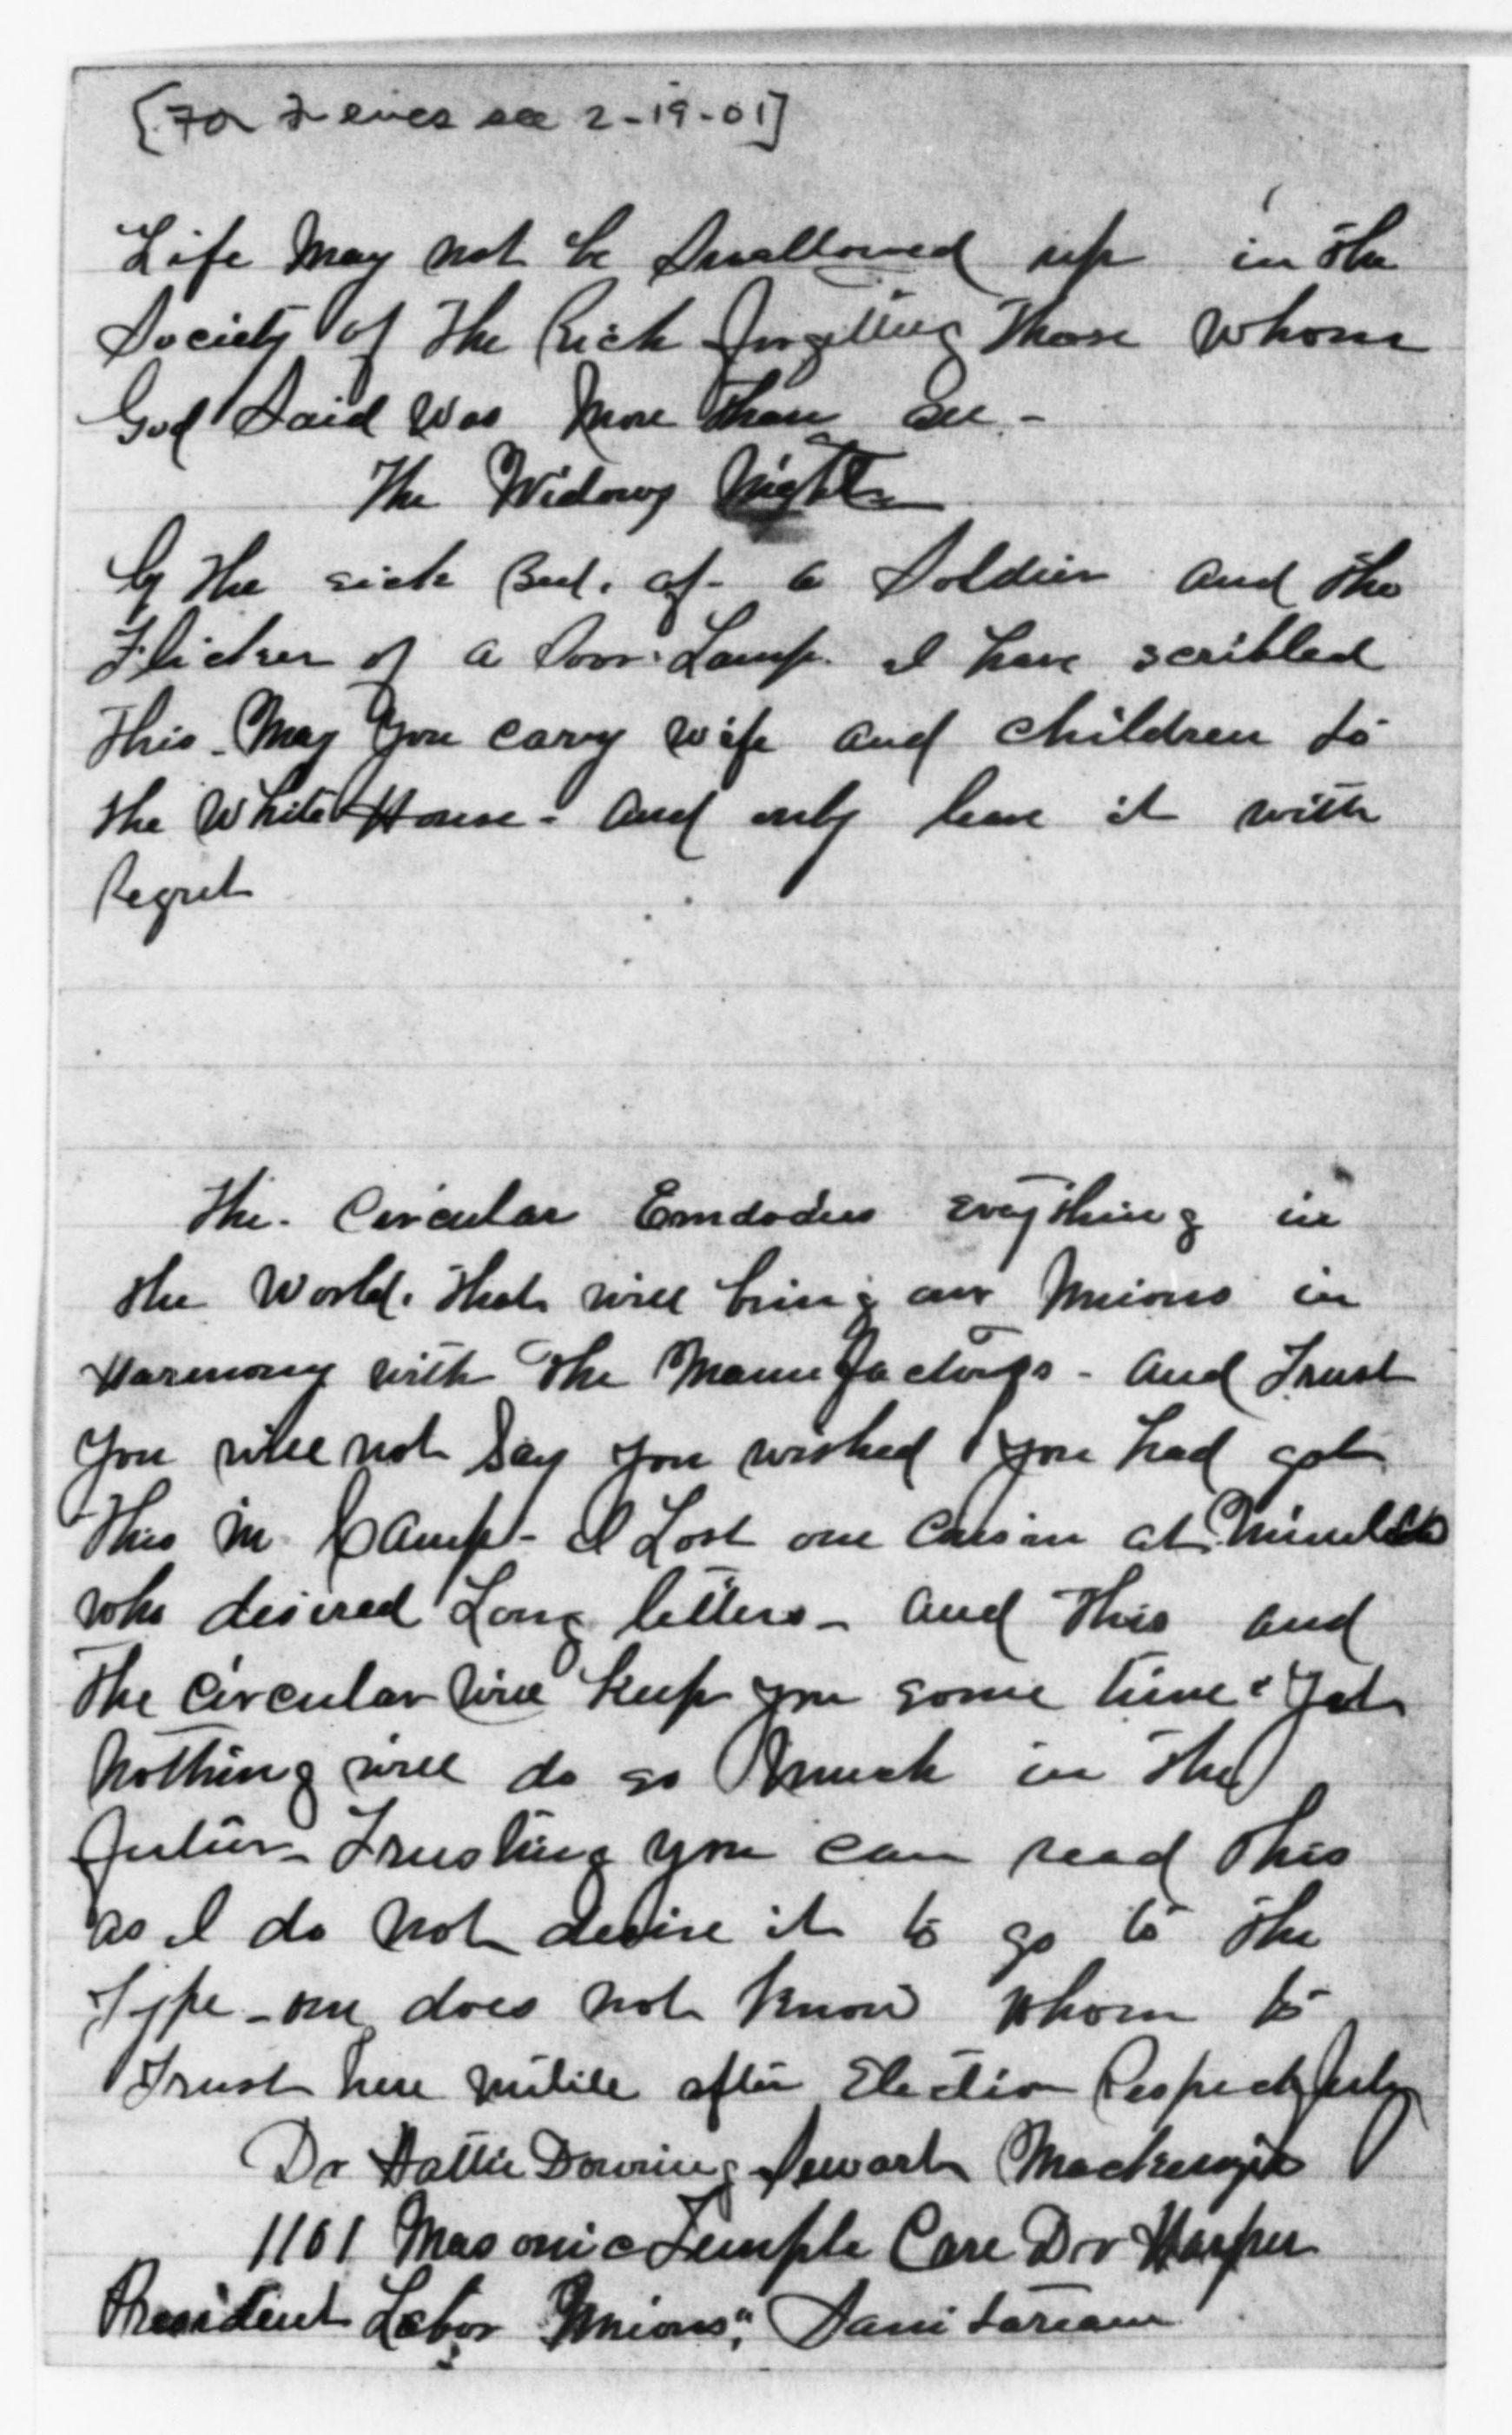 [For F ences see 2-19-01]
Life May not be Swallowed up in the
Society of the Rich forgetting those whom
God Said was More than all -
The Widows Night
By the sick Bed. of a Soldier and the
Flicker of a Poor Lamp. I have scribbled
this - May you carry wife and children to
the White House - and only leave it with
Regret
The Circular Emdodies evejthing in
the World. that will bring our Unions in
Harmony with the Manufactorys - and Trust
you will not Say you wished you had got
this in Camp - I Lost one Cusin at
who desired Long letters - and this and
the circular will keep you some time. Yet
Nothing will do so Much in the
future - Trusting you can read this
as I do not desire it to go to the
Type - one does not know whom to
Trust here until after Election Respectfuly
Dr Hattie Downing Sewart Mackenzie
1101 Masonic Temple Care Dr Harper
President Labor Unions", Sanitarium